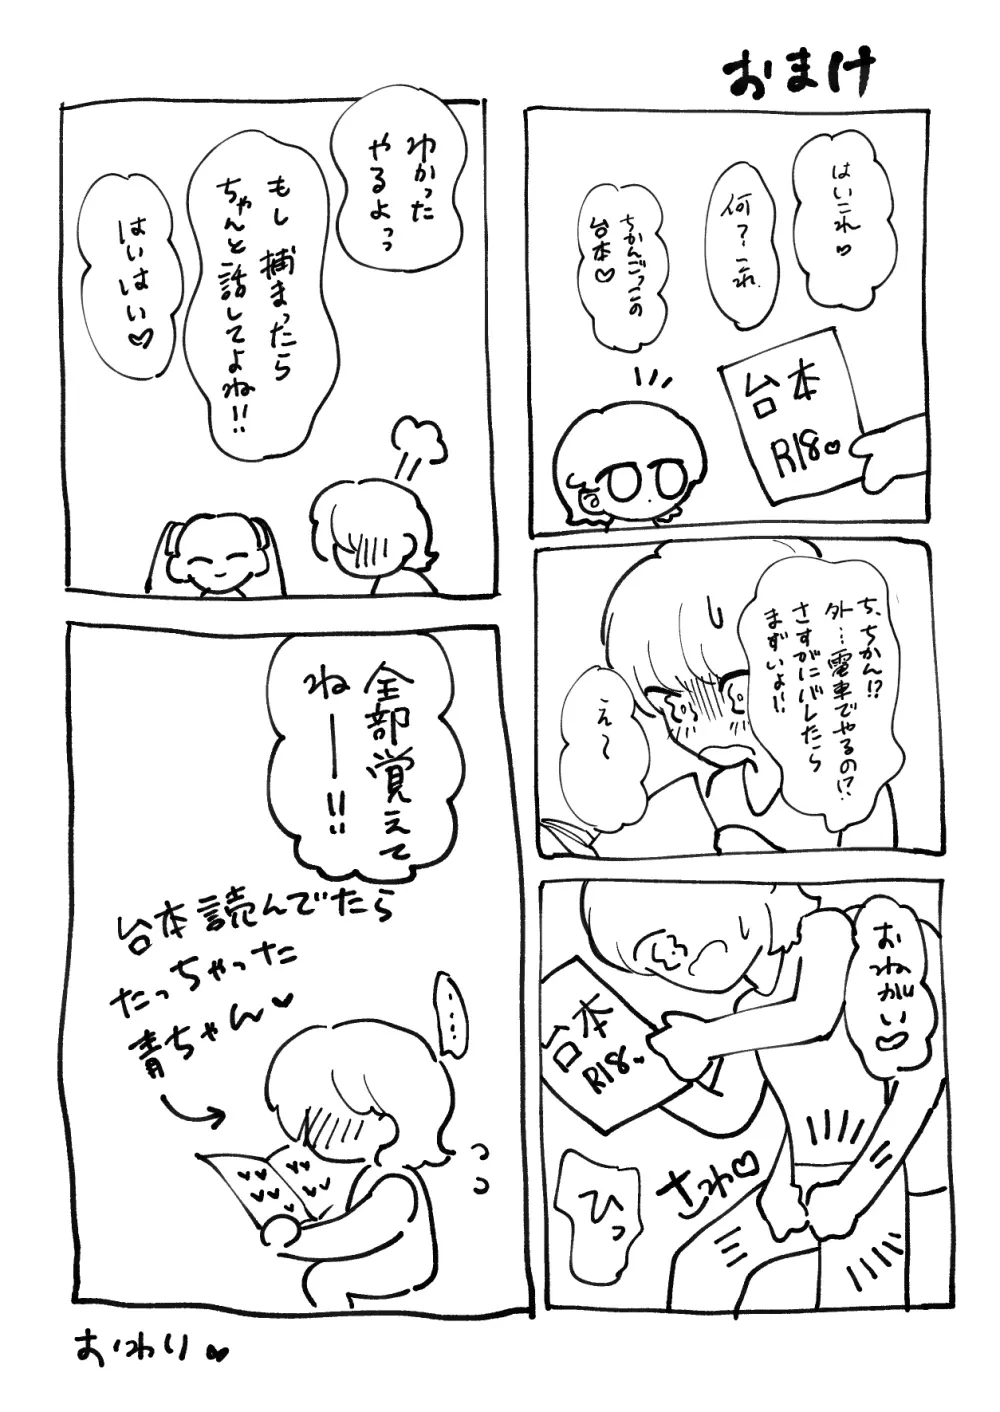 おまけ
はいこれ♡
何？これ
ちかんごっこの
台本♡
台本
R18♡
ち、ちかん!?
外…電車でやるの!?
さすがにバレたら
まずいよ!!
え〜
おねがい♡
台本
R18♡
さわ♡
ひっ
わかった
やるよっっ
もし捕まったら
ちゃんと話してよね!!
はいはい♡
全部覚えて
ねー!!
台本読んでたら
たっちゃった
青ちゃん♥
……
おわり♥